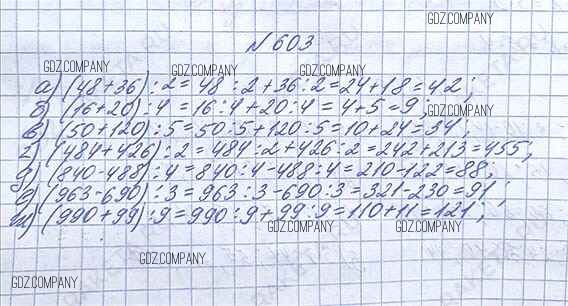 GDZ.COMPANY
№603
GDZ.COMPANY GDZ.COMPANY GDZ.COMPANY
а) (48+36):2=48:2+36:2=24+18=42;
б) (16+20):4=16:4+20:4=4+5=9;
GDZ.COMPANY
в) (50+120):5=50:5+120:5=10+24=34;
г) (484+426):2=484:2+426:2=242+213=455;
д) (840-488):4=840:4-488:4=210-122=88;
е) (963-690):3=963:3-690:3=321-230=91;
ж) (990+99):9=990:9+99:9=110+11=121;
GDZ.COMPANY GDZ.COMPANY
GDZ.COMPANY
GDZ.COMPANY